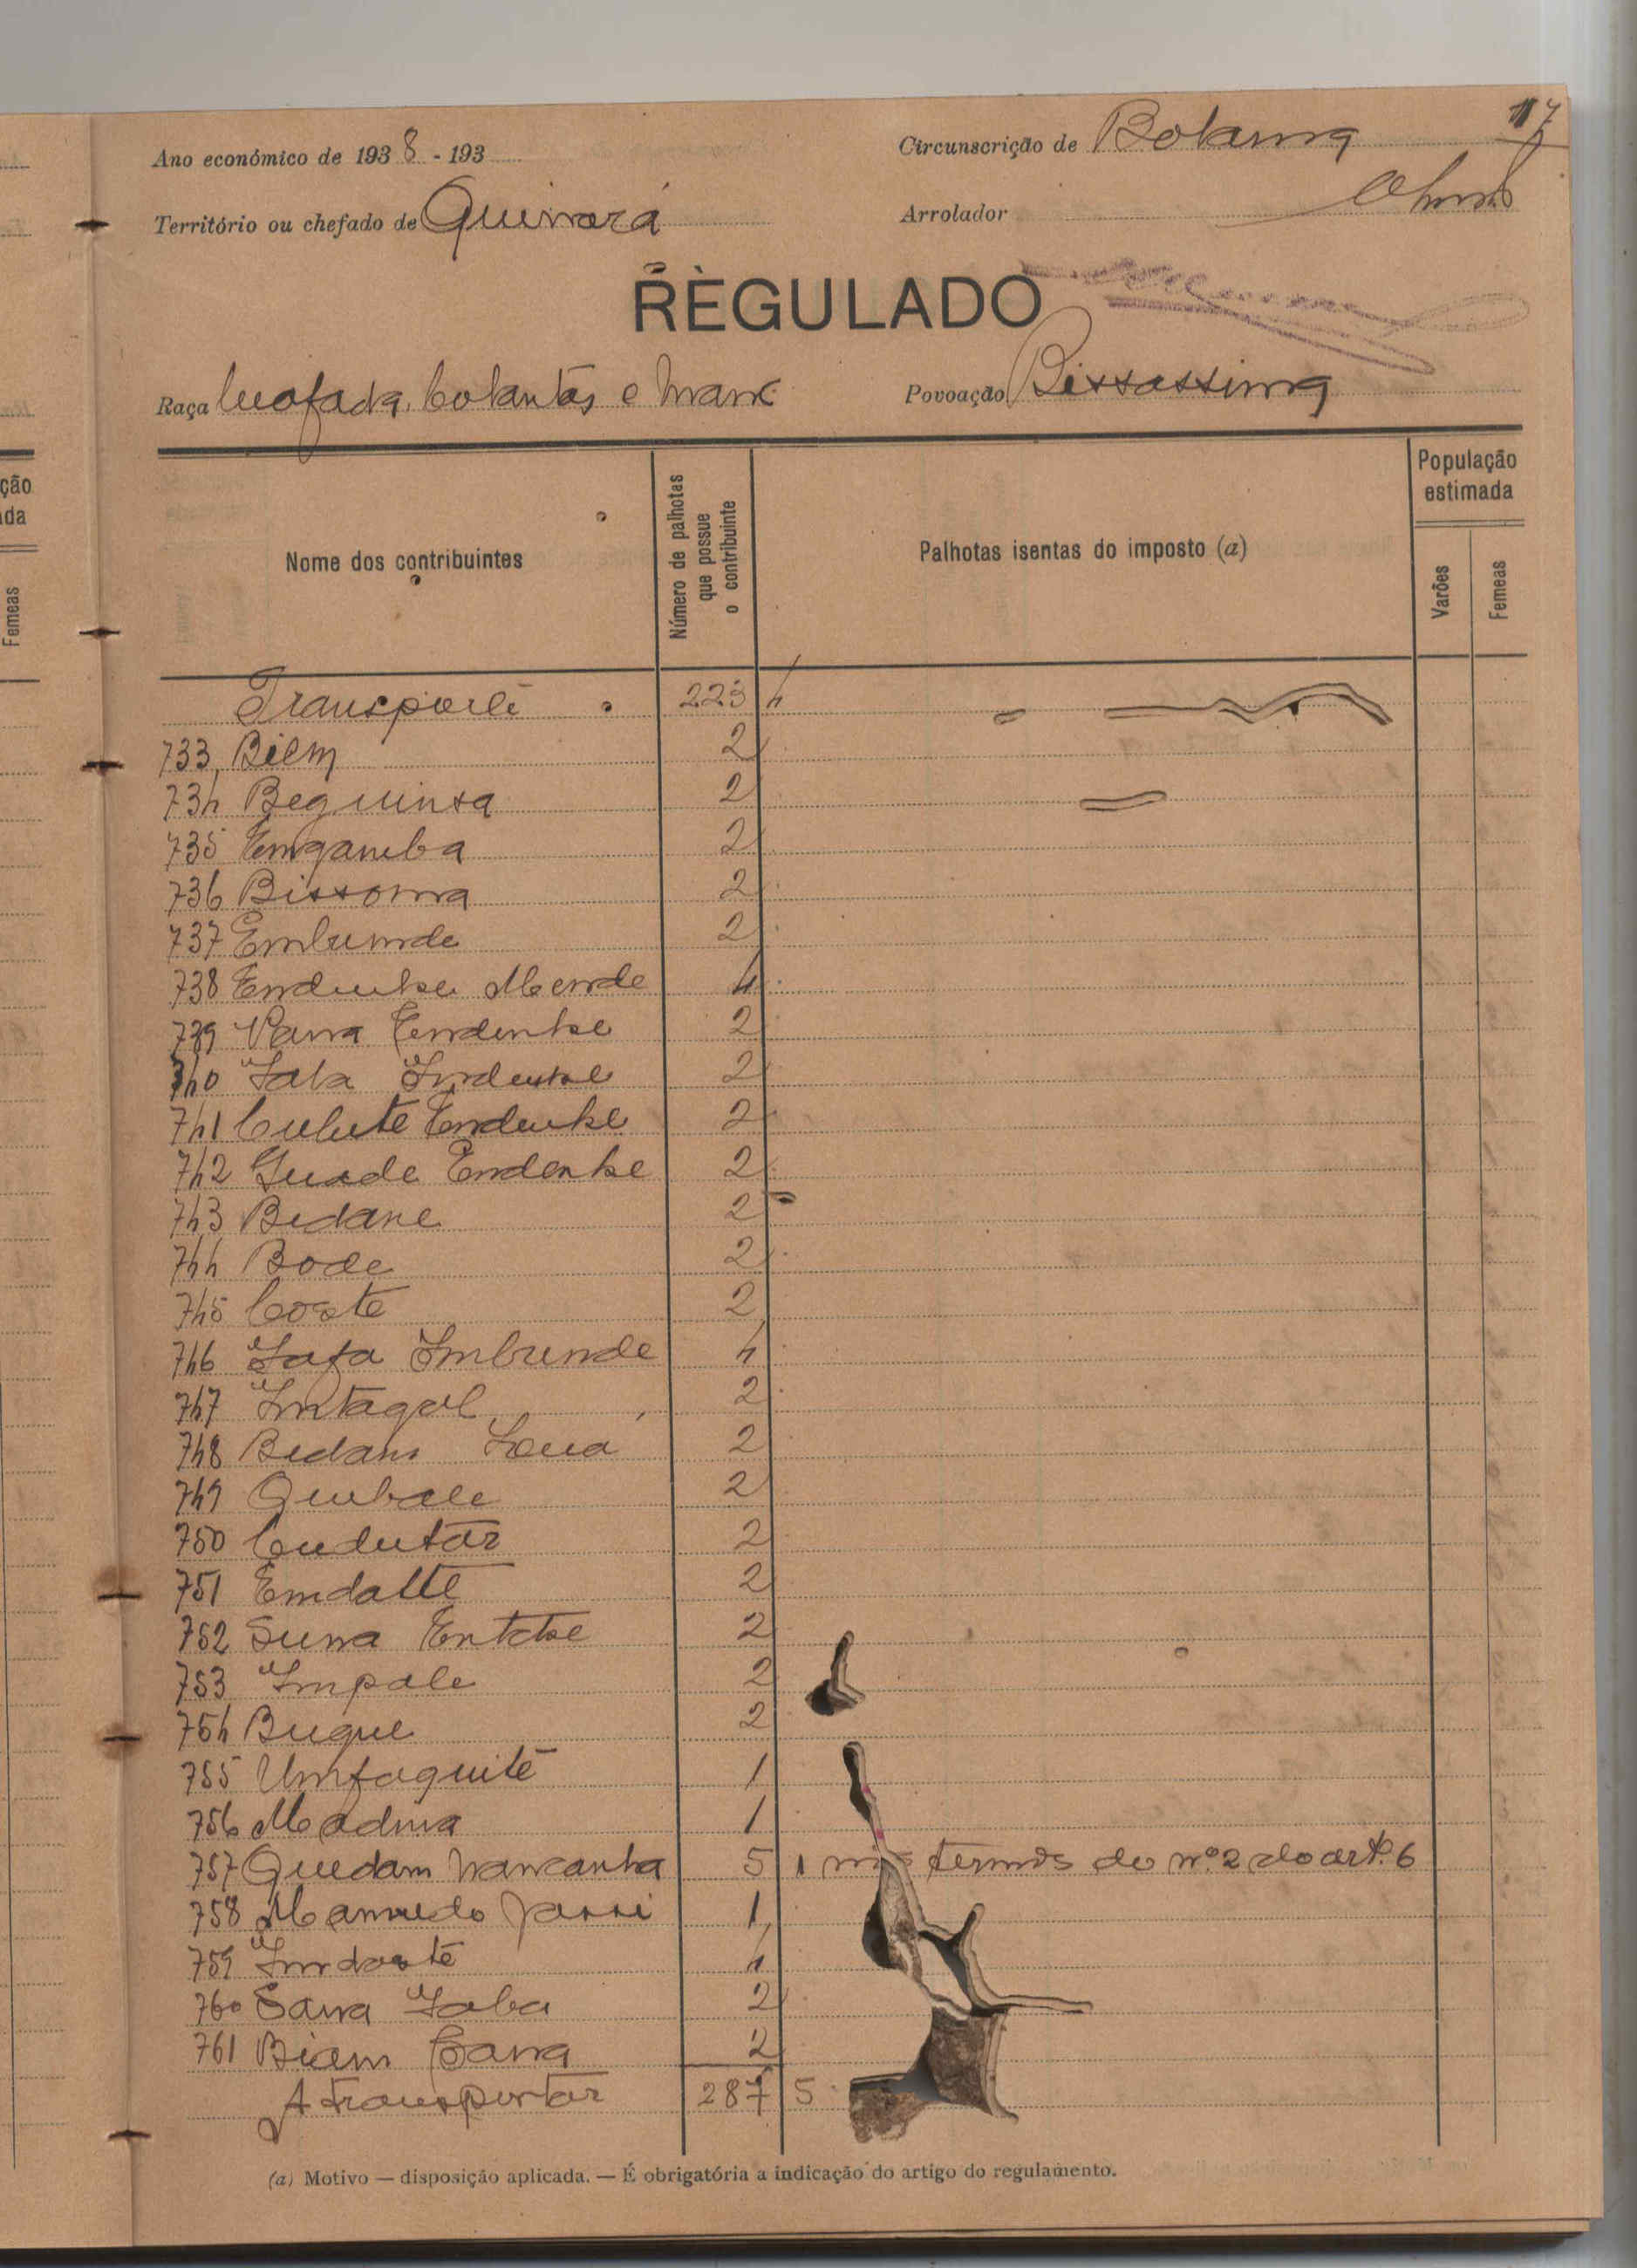 17
Ano económico de 1938 - 193
Circunscrição de Bolama
Território ou chefado de Quinara
Arrolador
REGULADO
Raça
Povoação Bissassima
ção
da
Femeas
Nome dos contribuintes
Número de palhotas
que possue
o contribuinte
Palhotas isentas do imposto (a)
População
estimada
Varões
Femeas
Transporte 223 4
733 Biem 2
734 Beguinsa 2
735 Engamba 2
736 Bissoma 2
737 Embunde 2
738 Endenke Mende 4
739 Vana Endenke 2
740 2
741 Culute Endenke 2
742 Guade Endenke 2
743 Bedane 2
744 Bode 2
745 2
746 Imbunde 4
747 Intagol 2
748 Bedam 2
749 Quebale 2
750 Cudutar 2
751 Emdatte 2
752 2
753 Impale 2
754 Buque 2
755 1
756 Madina 1
757 Quedam Mancanha 5 1 nos termos do nº 2 do artº 6
758 1
759 4
760 Sana 2
761 Biam 2
A transportar 287 5
(a) Motivo — disposição aplicada. — É obrigatória a indicação do artigo do regulamento.